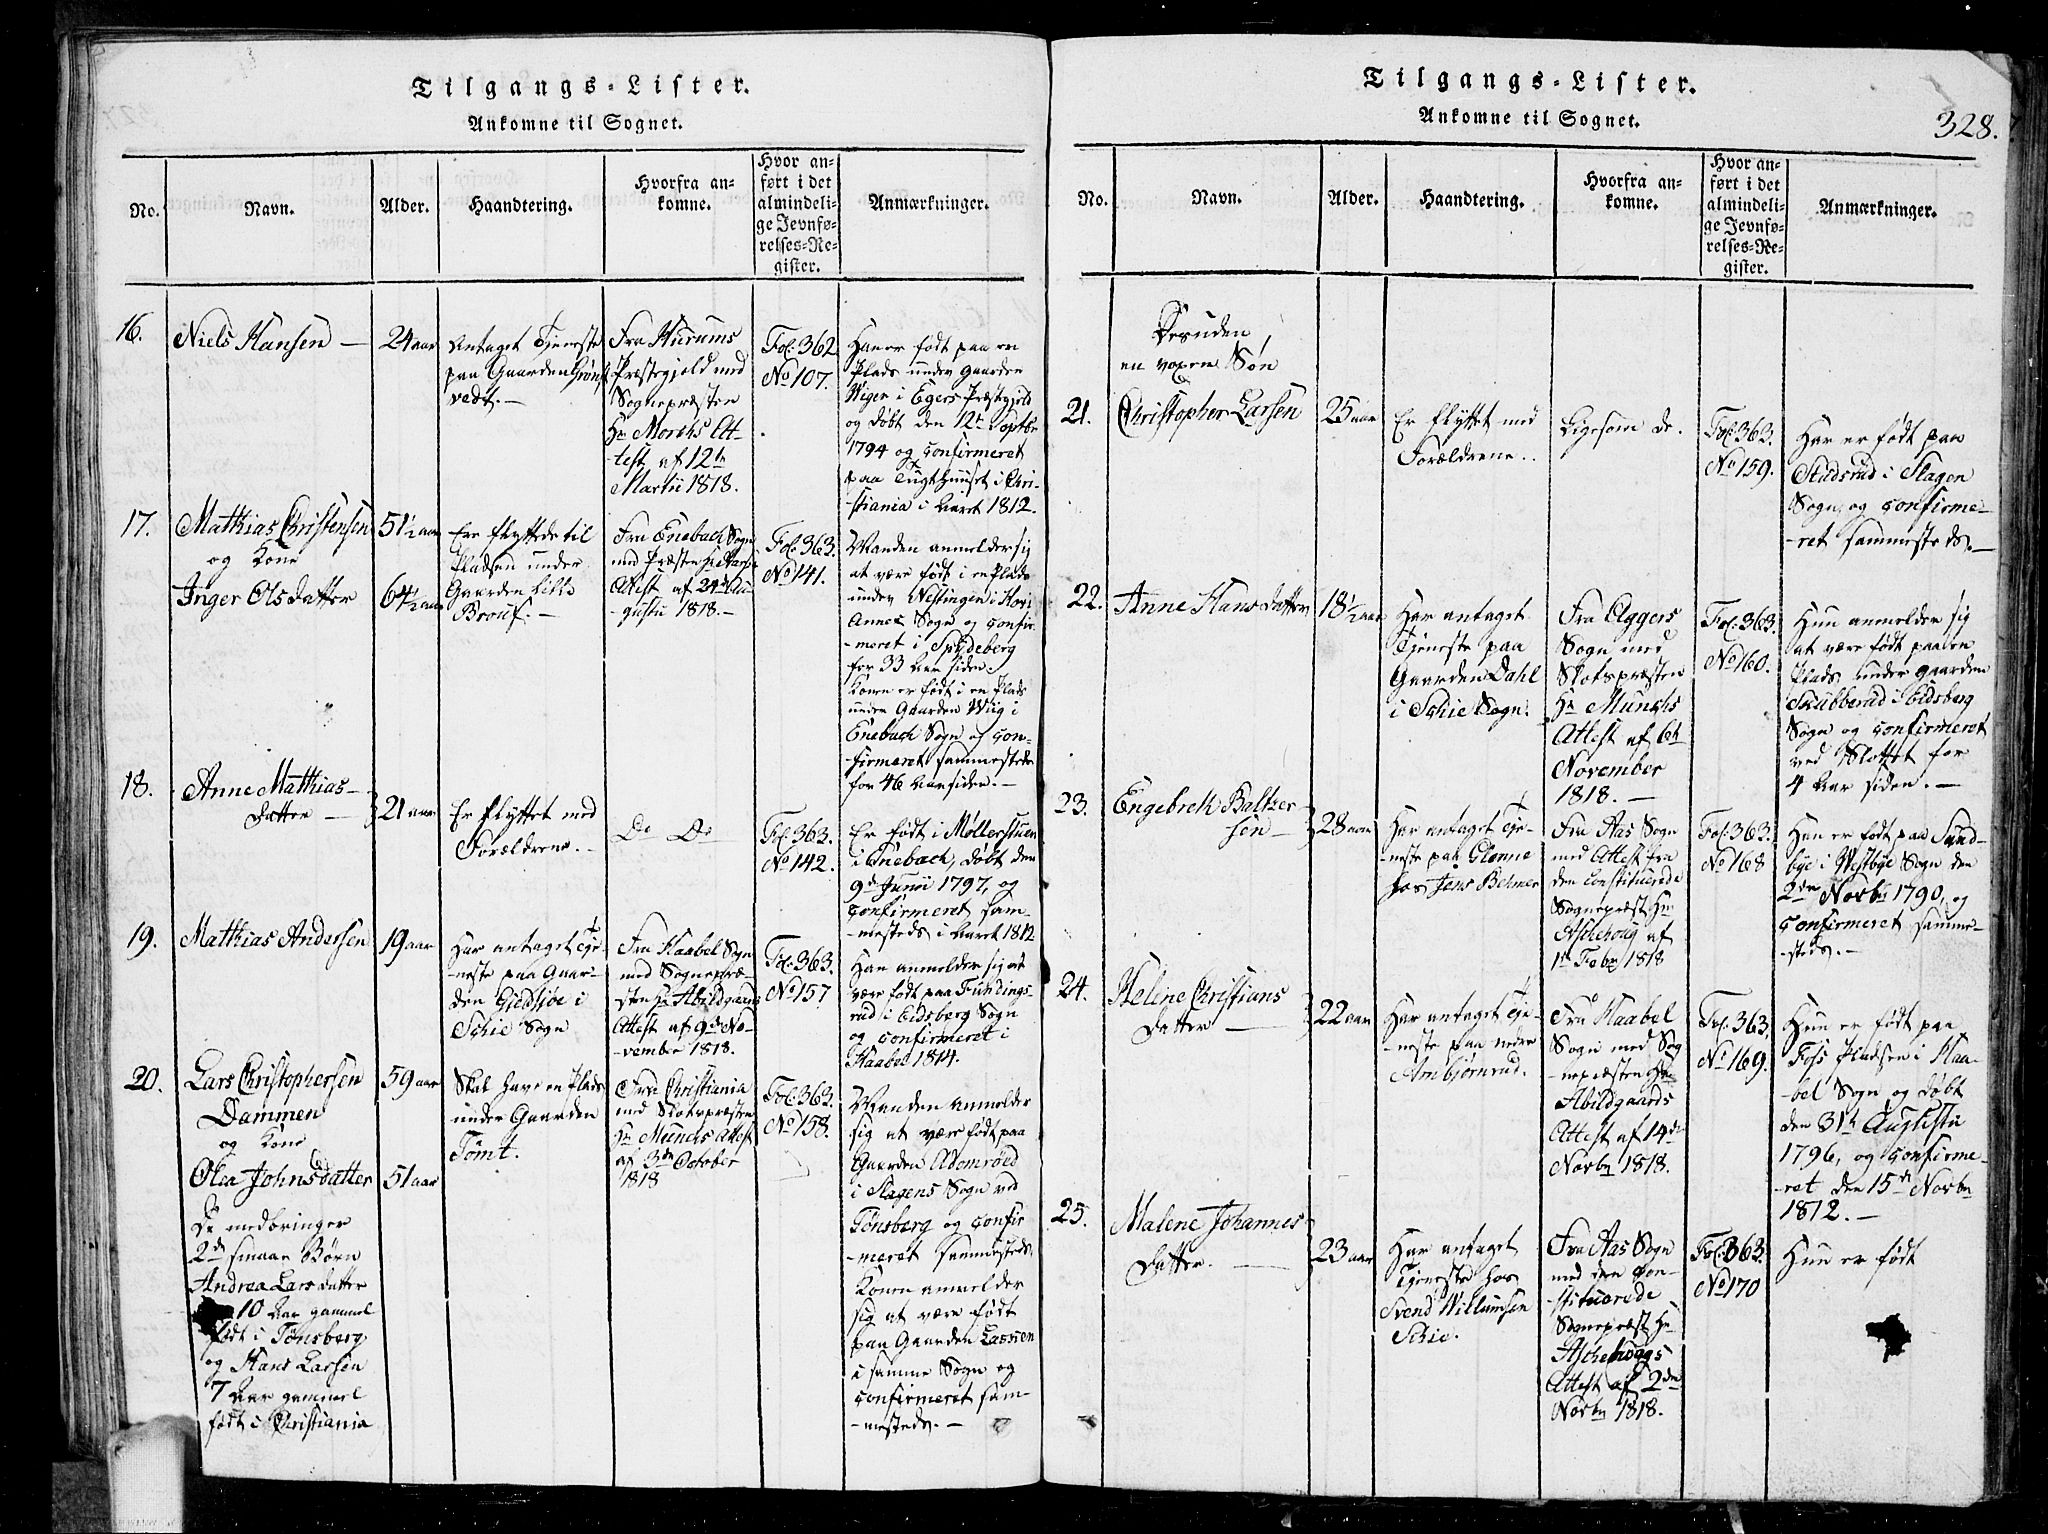 Tilgangs-Lister.
Ankomne til Sognet.
No.
Navn.
Alder.
Haandtering.
Hvorfra an-
komne.
Hvor an-
ført i det
almindeli-
ge Jevnfø-
relses-Re-
gister.
Anmærkninger.
16.
Niels Hansen —
24 aar
Antaget Tjeneste
paa Gaarden
vedt. —
Fra Hurums
Præstegjeld med
Sognepræsten
Hr Morchs At-
test af 12te
Martii 1818.
Fol: 362
No 107.
Han er født paa en
Plads under Gaarden
Wiger i Egers Præstgjeld
og døbt den 12te Septbr
1794 og confirmeret
paa Tugthuuset i Chri-
stiania i Aaret 1812.
17.
Matthias Christensen
og Kone
Inger Olsdatter
51½ aar
64½ aar
Ere flyttede til
Pladsen under
Gaarden Lille
Brouf. —
Fra Enebach Sogn
med Præsten Hr
Attest af 24de Au-
gusti 1818. —
Fol: 363.
No 141.
Manden anmelder sig
at være født i en Plads
under Nestingen i Hovi
Annex Sogn og confir-
-meret i Spydeberg
for 33 Aar siden.
Konen er født i en Plads
under Gaarden Wiig i
Enebach Sogn og con-
firmeret sammesteds
for 46 Aar siden. —
18.
Anne Mathias-
datter —
21 aar
Er flyttet med
Forældrene. —
Do Do
Fol: 363.
No 142.
Er født i Møllerstuen
i Enebach, døbt den
9de Junii 1797, og
confirmeret sam-
-mesteds i Aaret 1812
19.
Matthias Andersen
19 aar
Har antaget Tje-
neste paa Gaar-
den Giedsjøe i
Schie Sogn
Fra Haabel Sogn
med Sognepræ-
sten Hr Abildgaards
Attest af 9de No-
-vember 1818.
Fol: 363.
No 157
Han anmelder sig at
være født paa Fundings-
rud i Eidsberg Sogn
og confirmeret i
Haabel 1814.
20.
Lars Christophersen
Dammen
og Kone
Olea Johnsdatter
De medbringer
2de smaae Børn
Andrea Larsdatter
10 Aar gammel
født i Tønsberg
og Hans Larsen
7 Aar gammel
født i Christiania
59 aar
51 aar
Skal have en Plads
under Gaarden
Tomt.
Fra Christiania
med Slotspræsten
Hr Munchs Attest
af 3die October
1818
Fol: 363.
No 158.
Manden anmelder
sig at være født paa
Gaarden Adomrøed
i Slagens Sogn ved
Tønsberg og confir
-meret sammesteds
Konen anmelder
sig at være født
paa Gaarden Lassen
i samme Sogn og
confirmeret sam-
-mesteds. —
Tilgangs-Lister.
Ankomne til Sognet.
328.
No.
Navn.
Alder.
Haandtering.
Hvorfra an-
komne.
Hvor an-
ført i det
almindeli-
ge Jevnfø-
relses-Re-
gister.
Anmærkninger.
Desuden
en voxen Søn
21.
Christopher Larsen
25 aar
Er flyttet med
Forældrene.
Ligesom de.
Fol: 363.
No 159.
Har er født paa
Studsrud i Slagen
Sogn, og confirme-
-ret sammesteds. —
22.
Anne Hansdatter
18½ aar
Har antaget
Tjeneste paa
Gaarden Dahl
i Schie Sogn.
Fra Aggers
Sogn med
Slotspræsten
Hr Munchs
Attest af 6te
November
1818. —
Fol: 363.
No 160.
Hun anmelder sig
at være født paa en
Plads under Gaarden
Skubberud i Eidsberg
Sogn og confirmeret
ved Slottet for
4 Aar siden. —
23.
Engebreth Baltzer-
sen —
28 aar
Har antaget Tje-
-neste paa Glenne
hos Jens Behmer
Fra Aas Sogn
med Attest fra
den constituerede
Sognepræst Hr
Aschehoug af
1te Febr 1818
Fol: 363.
No 168
Han er født paa Sund-
bye i Westbye Sogn den
2den Novbr 1790, og
confirmeret samme-
-steds. —
24.
Helene Christians
datter —
22 aar
Har antaget Tje-
-neste paa neder
Ambjørnrud.
Fra Haabel
Sogn med Sog
-nepræsten Hr
Abildgaards
Attest af 14de
Novbr 1818.
Fol: 363,
No 169.
Hun er født paa
Foss Pladsen i Haa-
-bel Sogn og døbt
den 31te Augusti
1796, og confirme-
-ret den 15de Novbr
1812. —
25.
Malene Johannes
datter. —
23 aar
Har antaget
Tjeneste hos
Svend Willumsen
Schie.
Fra Aas Sogn
med den con-
-stituerede
Sognepræst Hr
Aschehougs
Attest af 2den
Novbr 1818.
Fol: 363
No 170
Hun er født